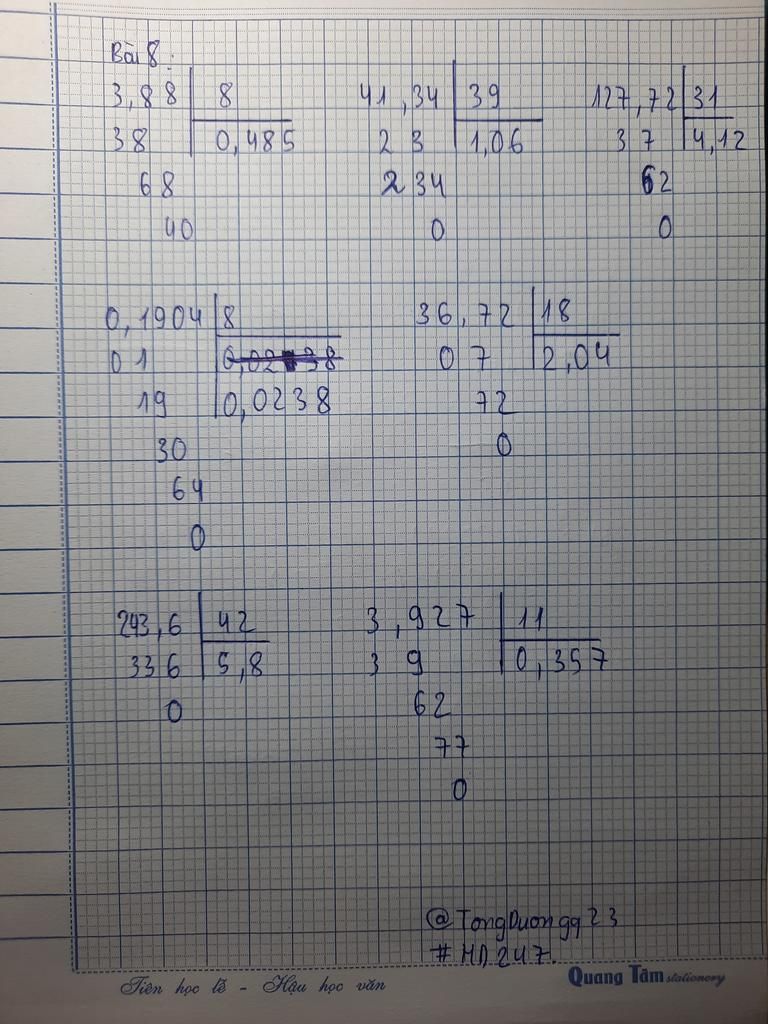 Bài 8:
3,88 8 41,34 39 127,72 31
38 0,485 23 1,06 37 4,12
68 234 62
40 0 0
0,1904 8 36,72 18
01 07 2,04
19 0,0238 72
30 0
64
0
243,6 42 3,927 11
336 5,8 39 0,357
0 62
77
0
@TongDuonggg23
#HD247.
Tiên học lễ - Hậu học văn Quang Tâm stationery